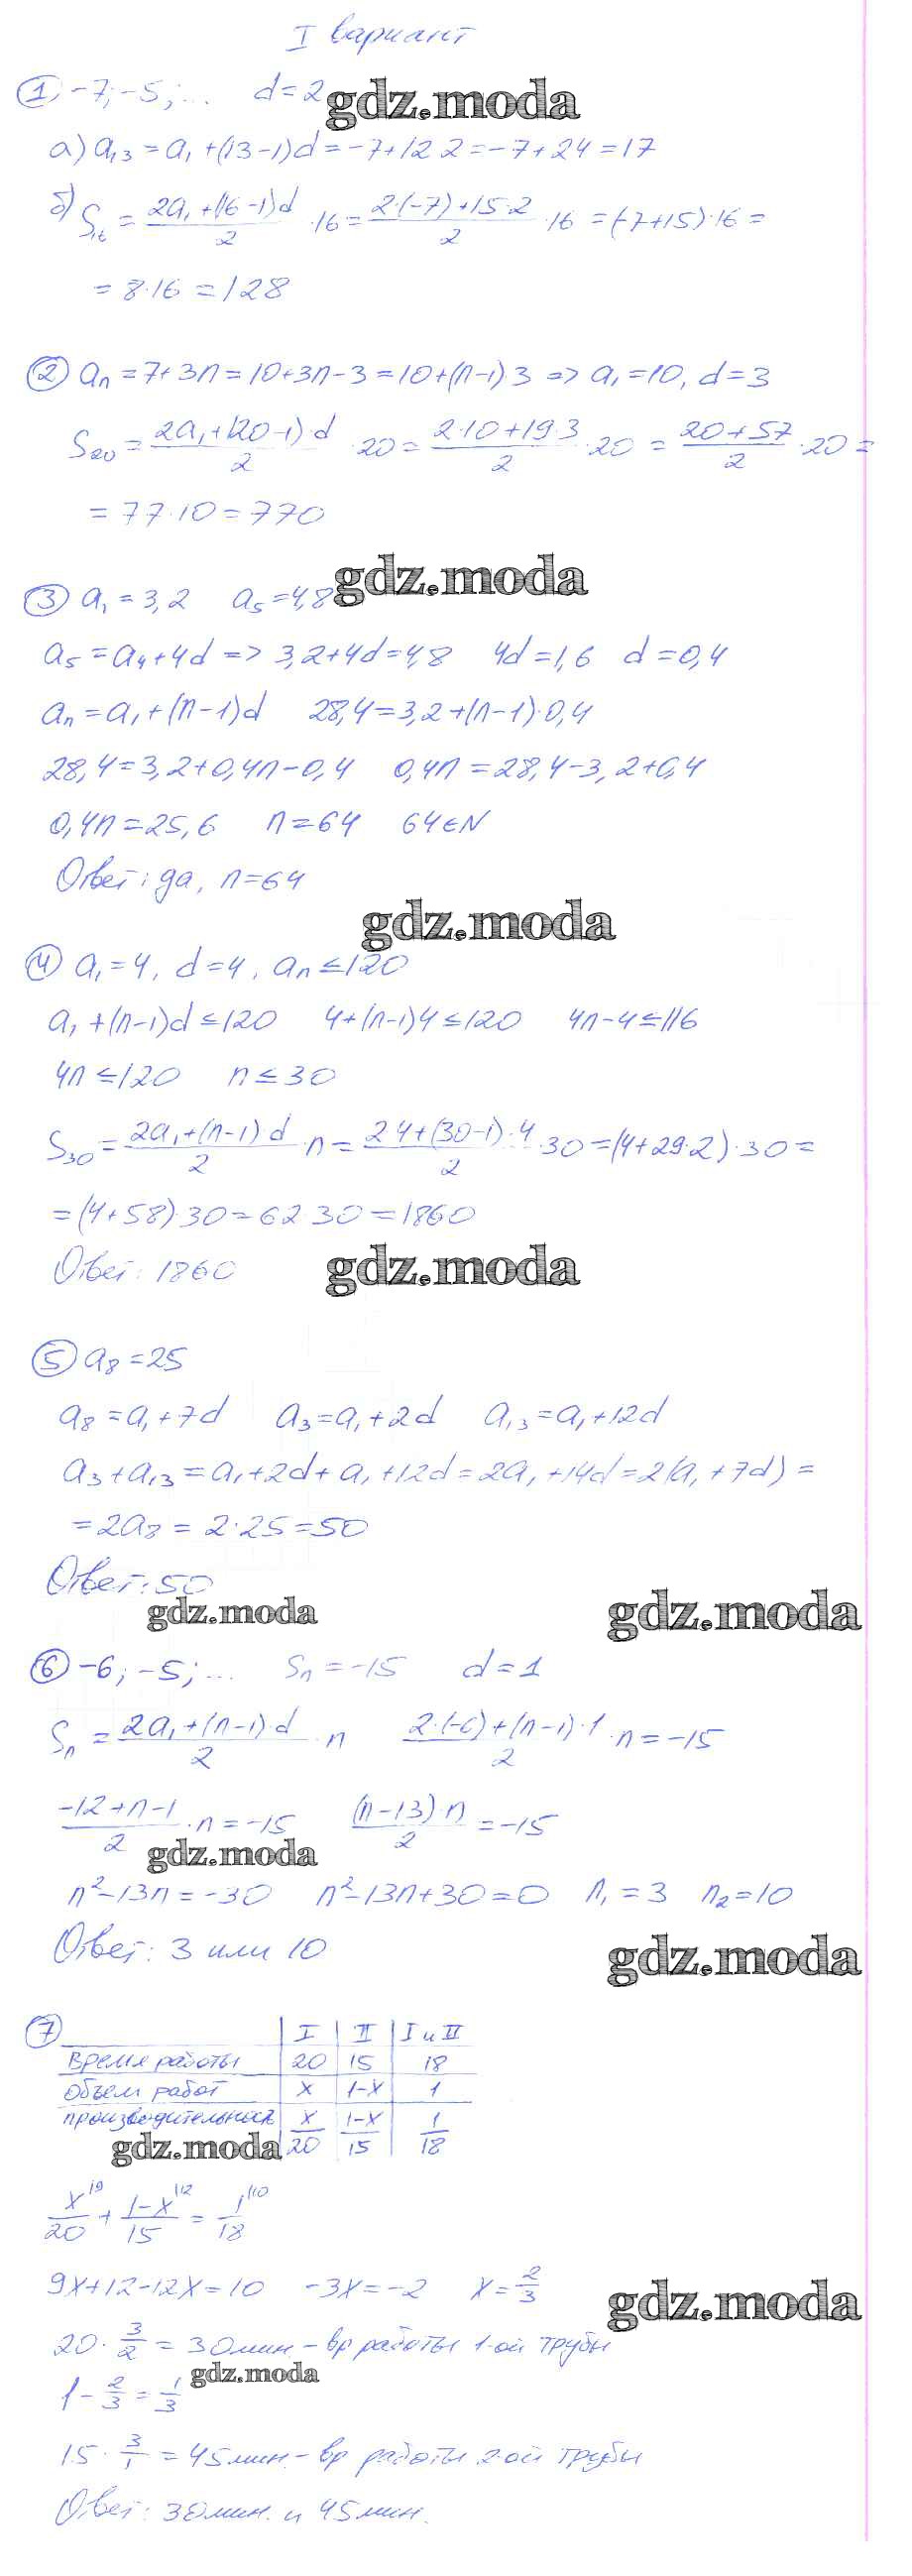 I вариант
① -7; -5; ... d=2 gdz.moda
а) a₁₃ = a₁ + (13-1)d = -7+12 2 = -7+24 = 17
б) S₁₆ = (2a₁+(16-1)d)/2 · 16 = (2·(-7)+15·2)/2 · 16 = (-7+15)·16 =
= 8·16 = 128
② aₙ = 7+3n = 10+3n-3 = 10+(n-1) 3 => a₁ = 10, d = 3
S₂₀ = (2a₁+(20-1)·d)/2 · 20 = (2·10+19·3)/2 · 20 = (20+57)/2 · 20 =
= 77·10 = 770
gdz.moda
③ a₁ = 3,2 a₅ = 4,8
a₅ = a₁+4d => 3,2+4d = 4,8 4d = 1,6 d = 0,4
aₙ = a₁+(n-1)d 28,4 = 3,2+(n-1)·0,4
28,4 = 3,2+0,4n-0,4 0,4n = 28,4-3,2+0,4
0,4n = 25,6 n = 64 64∈N
Ответ: да, n = 64
gdz.moda
④ a₁ = 4, d = 4, aₙ ≤ 120
a₁+(n-1)d ≤ 120 4+(n-1)4 ≤ 120 4n-4 ≤ 116
4n ≤ 120 n ≤ 30
S₃₀ = (2a₁+(n-1)d)/2 · n = (2 4+(30-1)·4)/2 · 30 = (4+29·2)·30 =
= (4+58)·30 = 62 30 = 1860
Ответ: 1860 gdz.moda
⑤ a₈ = 25
a₈ = a₁+7d a₃ = a₁+2d a₁₃ = a₁+12d
a₃+a₁₃ = a₁+2d+a₁+12d = 2a₁+14d = 2(a₁+7d) =
= 2a₈ = 2·25 = 50
Ответ: 50
gdz.moda gdz.moda
⑥ -6; -5; ... Sₙ = -15 d = 1
Sₙ = (2a₁+(n-1)·d)/2 · n (2·(-6)+(n-1)·1)/2 · n = -15
(-12+n-1)/2 · n = -15 ((n-13)·n)/2 = -15
gdz.moda
n²-13n = -30 n²-13n+30 = 0 n₁ = 3 n₂ = 10
Ответ: 3 или 10
gdz.moda
⑦ I II I и II
Время работы 20 15 18
объём работ x 1-x 1
производительность x/20 (1-x)/15 1/18
gdz.moda
x/20 |9 + (1-x)/15 |12 = 1/18 |10
9x+12-12x = 10 -3x = -2 x = 2/3
gdz.moda
20 · 3/2 = 30мин - вр работы 1-ой трубы
gdz.moda
1 - 2/3 = 1/3
15 · 3/1 = 45мин - вр работы 2-ой трубы
Ответ: 30мин. и 45мин.